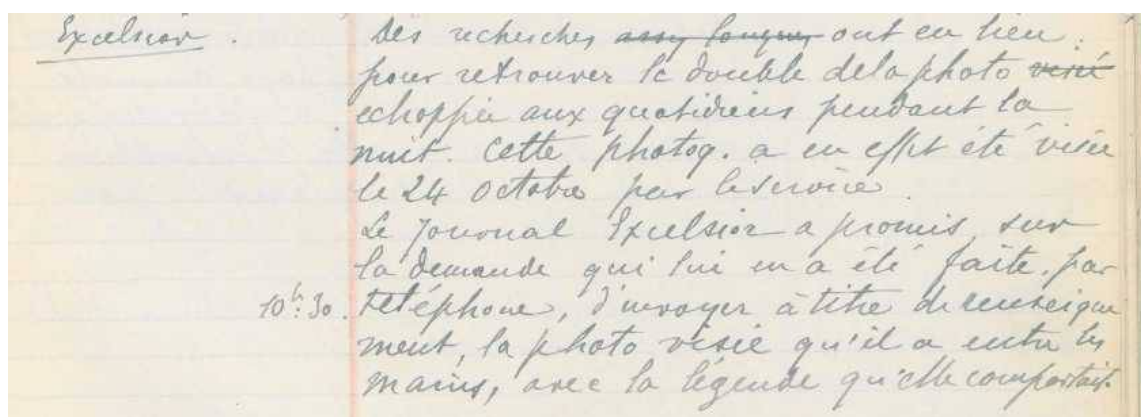 Excelsior. Des recherches assez longues ont eu lieu
pour retrouver le double de la photo visé
echoppée aux quotidiens pendant la
nuit. Cette photog. a en effet été visée
le 24 Octobre par le service.
Le Journal Excelsior a promis, sur
la demande qui lui en a été faite, par
10h:30. téléphone, d'envoyer à titre de renseigne
ment, la photo visée qu'il a entre les
mains, avec la légende qu'elle comportait.